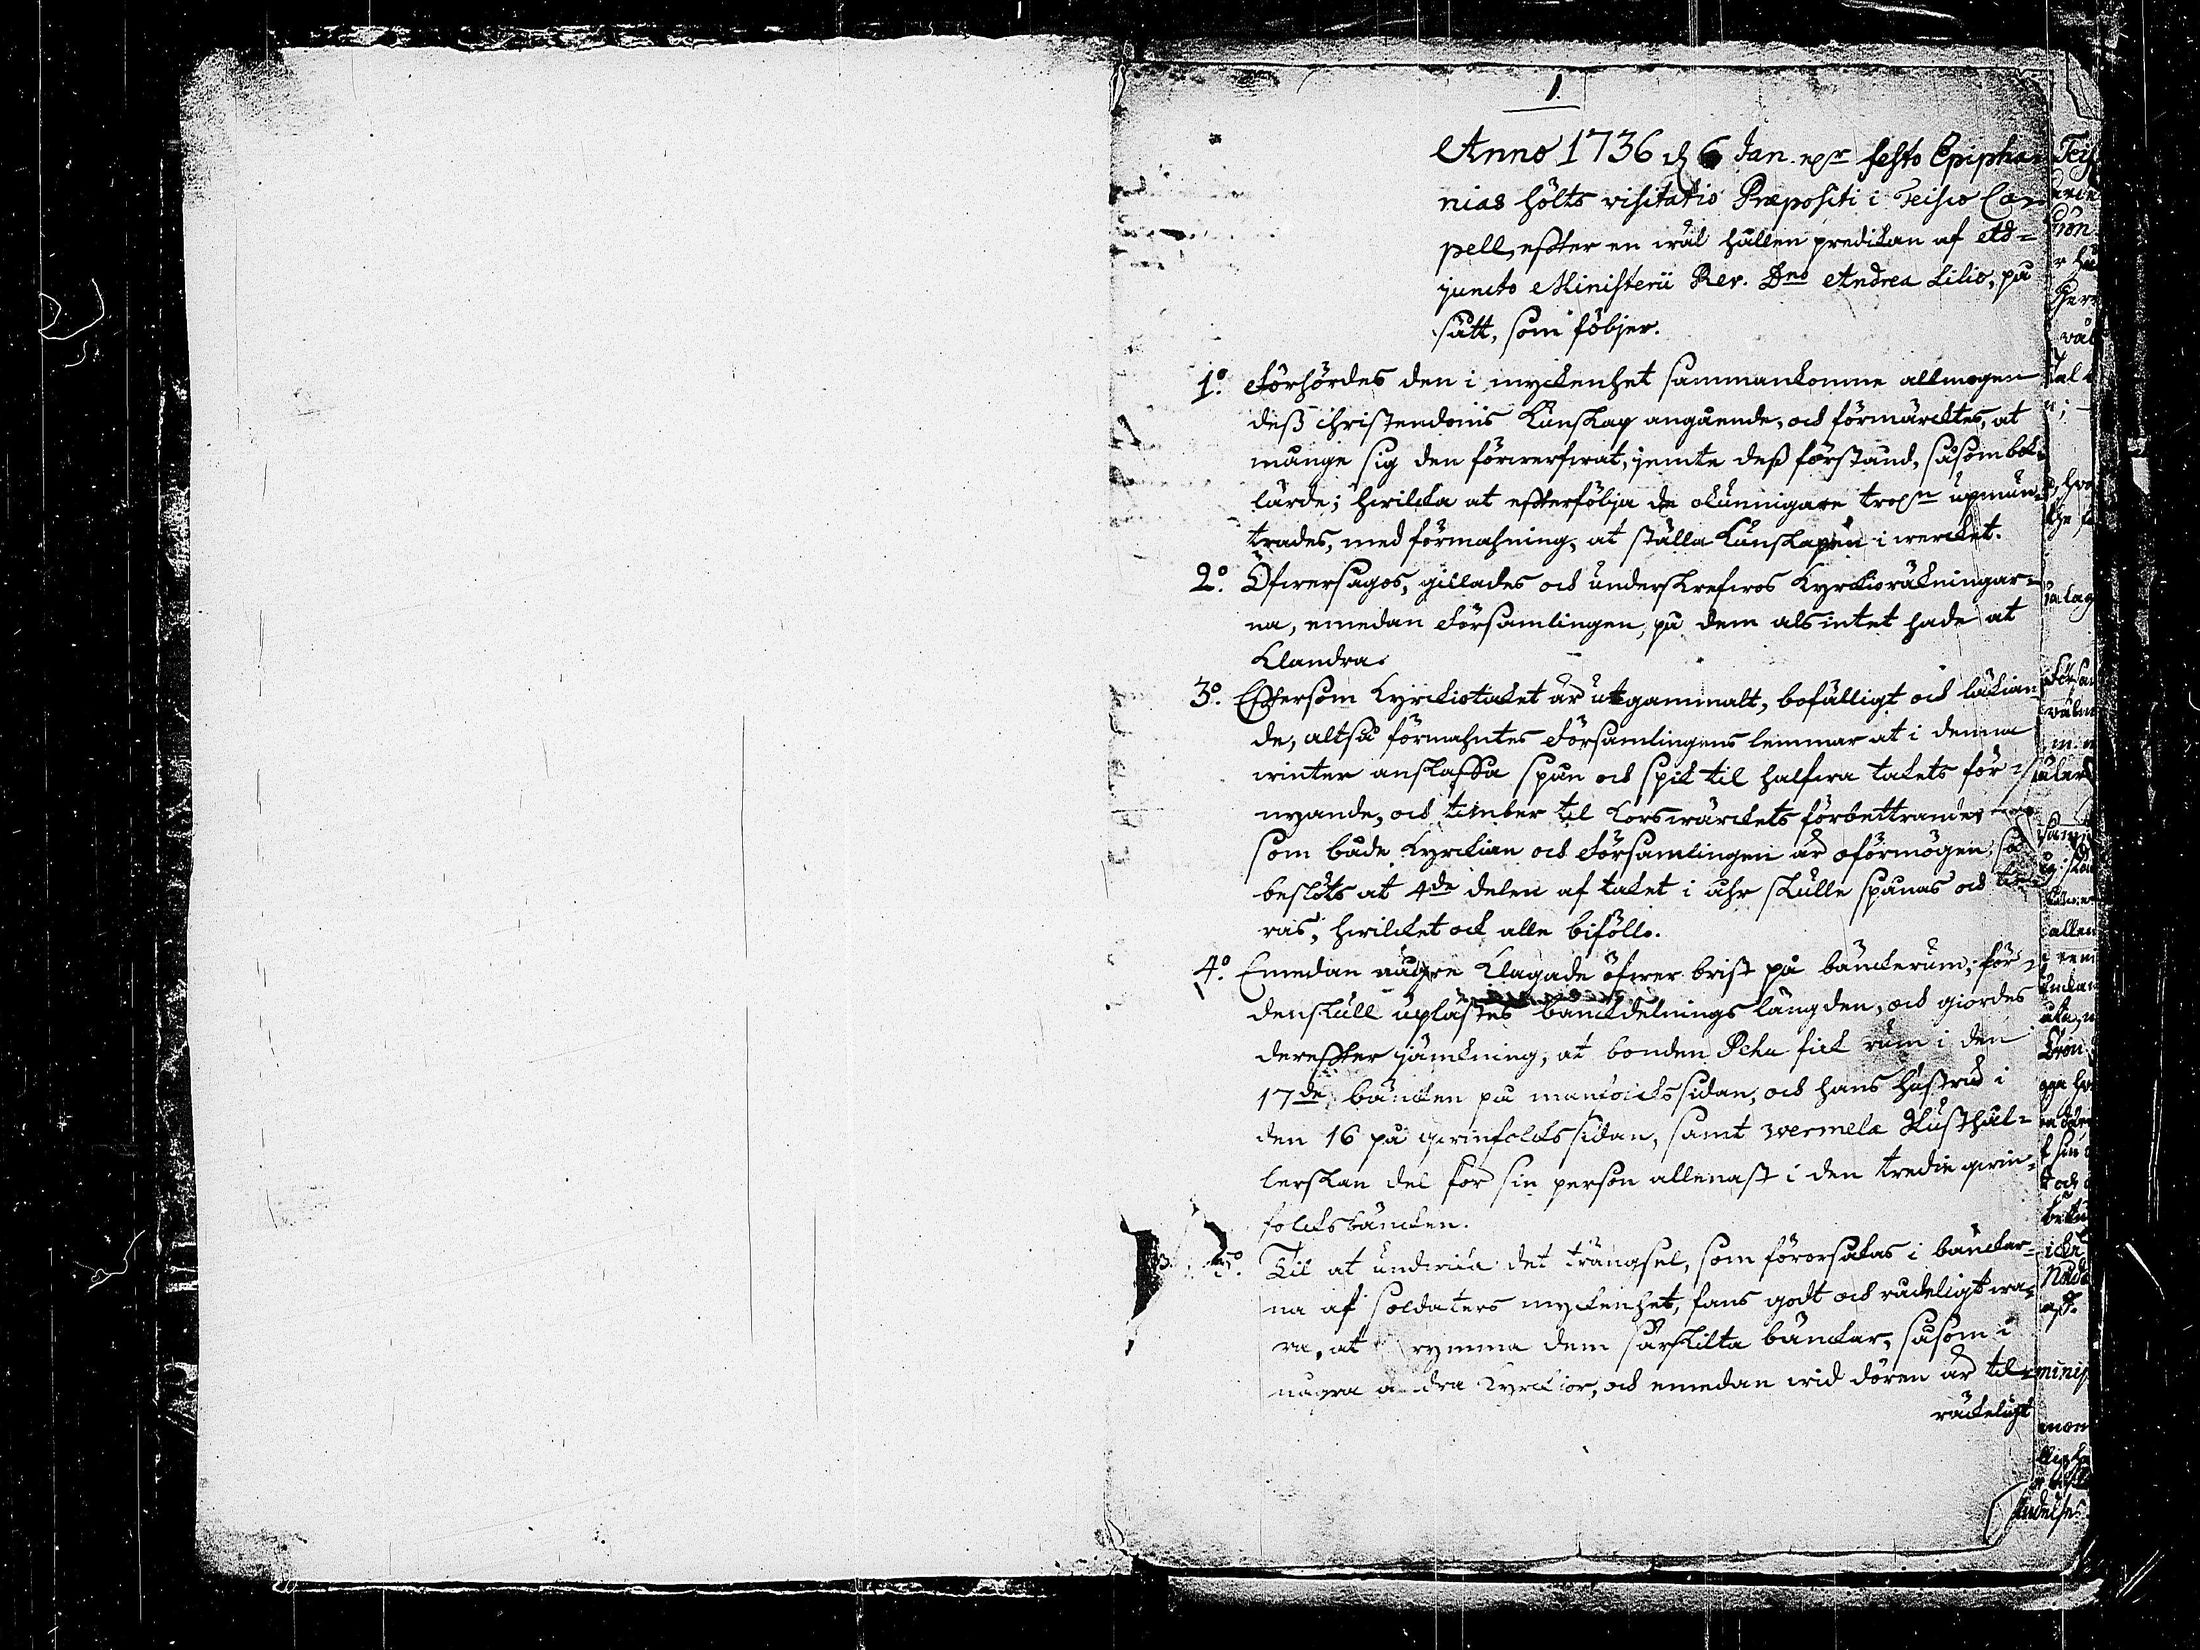 1.
Anno 1736 d. 6 Jan. festo Epipha-
nias hölts visitatio Præpositi i Teisco Ca-
pell, efter en wäl hållen predikan af Ad-
juncto Ministerii Rev. Dno Andrea Lilio, på
sätt, som följer.
1o. Förhördes den i myckenhet sammankomne allmogen
dess christendoms kunskap angående, och förmärcktes, at
mange sig den förwerfwat, jemte dess förstånd, såsom bok-
lärde; hwilcka at efterfölja de okunnigare upmun-
trades, med förmahning, at ställa kunskapen i wercket.
2o. Öfwersågos, gillades och underskrefwos kyrckioräkningar-
na, emedan Församlingen, på dem als intet hade at
klandra.
3o. Eftersom kyrckiotaket är utgammalt, bofälligt och läkian-
de, altså förmahntes Församlingens lemmar at i denna
winter anskaffa spån och spik til halfwa takets för-
nyande, och timber til korswärckets förbettrande;
som både kyrckian och Församlingen är oförmögen, så
beslöts at 4de delen af taket i åhr skulle spånas och
ras, hwilcket ock alle biföllo.
4o. Emedan någre klagade öfwer brist på bänckerum, för-
denskull uplästes bänckdelnings längden, och giordes
derefter jämckning, at bonden Peku fick rum i den
17de bäncken på manfolckssidan, och hans hustru i
den 16 på qwinfolckssidan, samt wermelä Rusthål-
lerskan del för sin person allenast i den tredie qwin-
folcksbäncken.
5o. Til at undwika det trängsel, som förorsakas i bänckar-
na af soldaters myckenhet, fans godt och rådeligt wa-
ra, at rymma dem särskilta bänckar, såsom i
några andra kyrckior, och emedan wid dören är til-
räckeligt